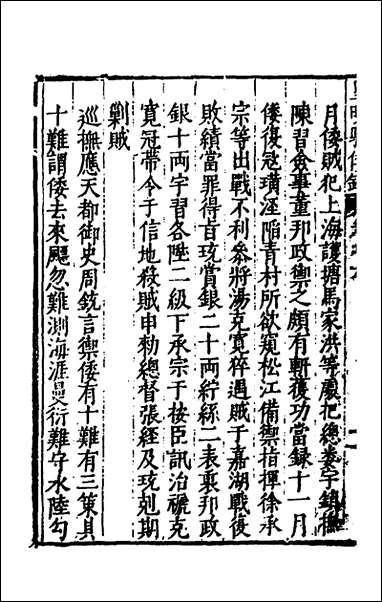 月倭賊犯上海護塘馬家洪等處把總婁宇鎮撫
陳習僉事董邦政禦之頗有斬獲功當録十一月
倭復寇璜涇陷青村所欲窺松江備禦指揮徐承
宗等出戰不利參將湯克寬猝遇賊于嘉湖戰復
敗績當罪得旨玧賞銀二十兩紵絲二表裏邦政
銀十两宇習各陞二級下承宗于按臣訊治褫克
寬冠帶令于信地殺賊申勅總督張經及玧剋期
剿賊
巡撫應天都御史周玧言禦倭有十難有三策具
十難謂倭去來飄忽難測海涯曼衍難守水陸勾